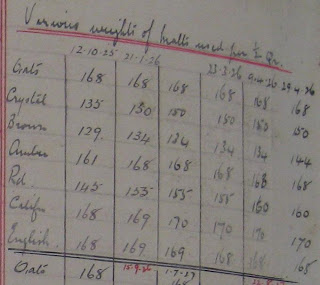 Various weights of Malts used per ½ Qr.
12-10-25 21-1-26 23-3-26 9-4-26 29-4-26
Oats 168 168 168 168 168 168
Crystal 135 150 150 150 150 150
Brown 129 134 134 134 134 144
Amber 161 168 168 168 168 168
Rd. 145 155 155 155 160 160
Califn 168 169 170 170 170 170
English 168 169 169 168 168 168
Oats 168 15-9-26 1-7-27
168